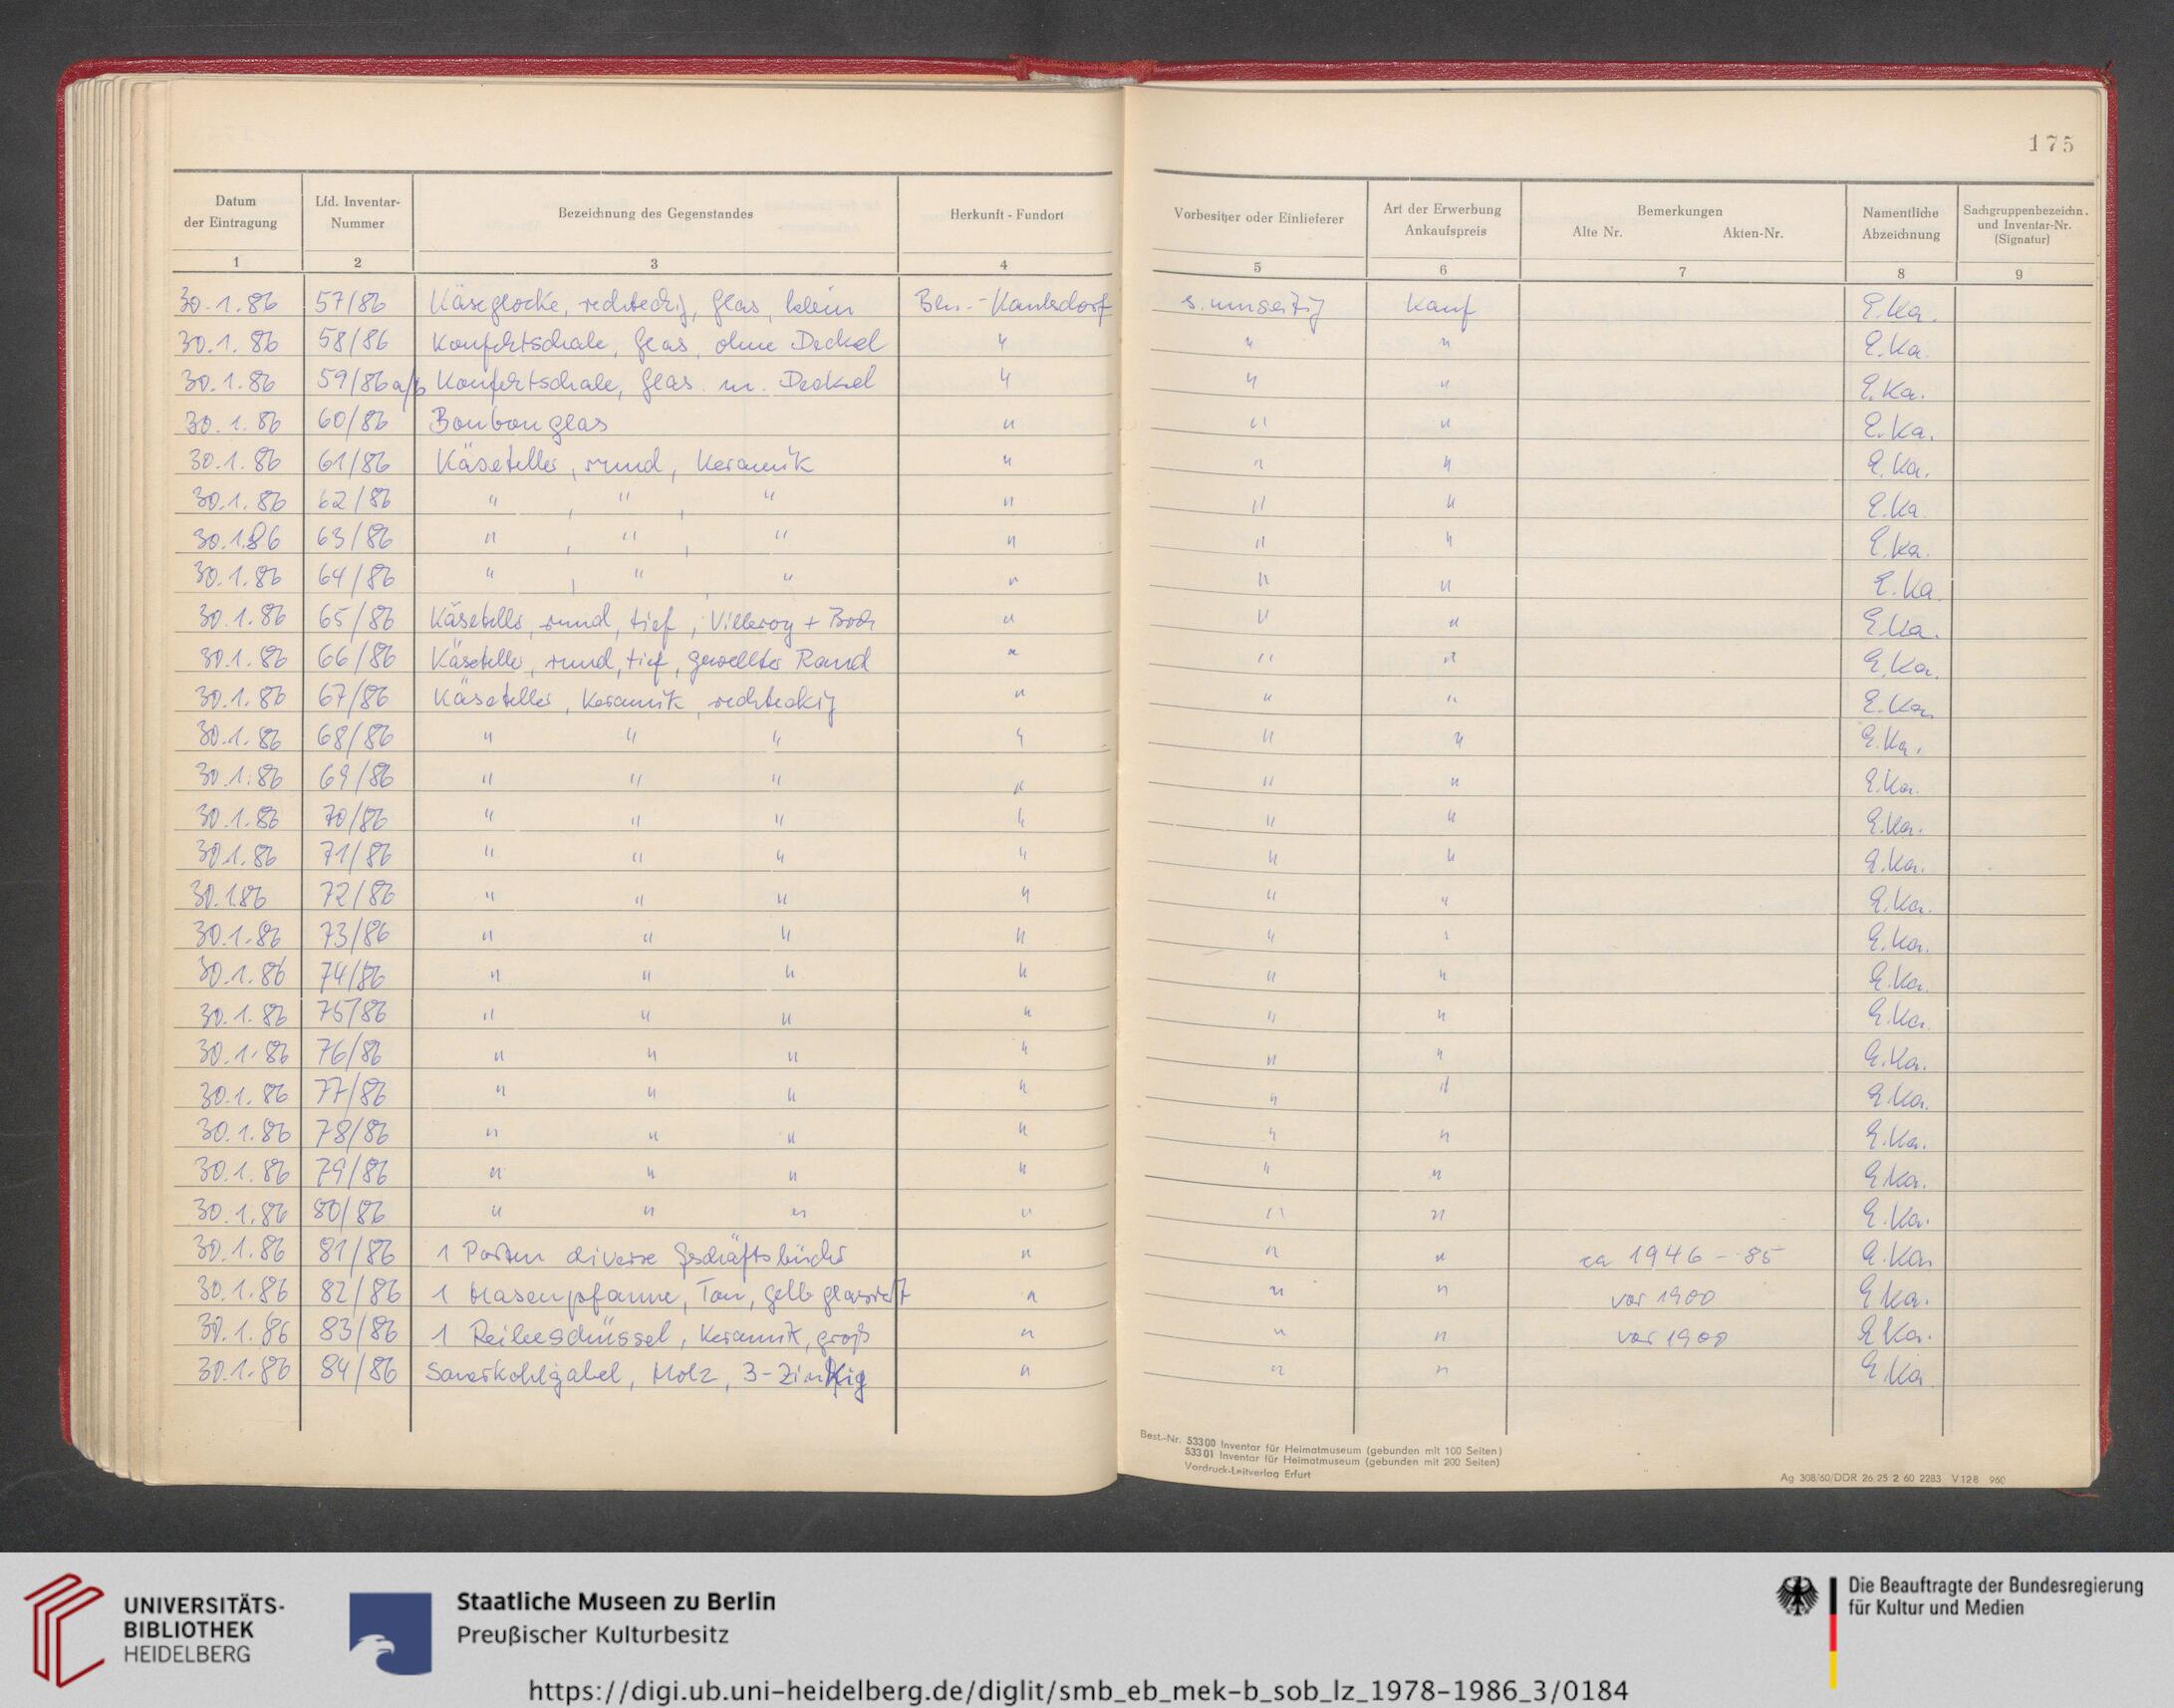 175
Datum der Eintragung | Lfd. Inventar-Nummer | Bezeichnung des Gegenstandes | Herkunft - Fundort | Vorbesitzer oder Einlieferer | Art der Erwerbung Ankaufspreis | Bemerkungen Alte Nr. Akten-Nr. | Namentliche Abzeichnung | Sachgruppenbezeichn. und Inventar-Nr. (Signatur)
1 | 2 | 3 | 4 | 5 | 6 | 7 | 8 | 9
30.1.86 | 57/86 | Käseglocke, rechteckig, Glas, klein | Bln.-Kaulsdorf | s. umseitig | Kauf | E.Ka.
30.1.86 | 58/86 | Konfektschale, Glas, ohne Deckel | " | " | " | E.Ka.
30.1.86 | 59/86 a/b | Konfektschale, Glas m. Deckel | " | " | " | E.Ka.
30.1.86 | 60/86 | Bonbonglas | " | " | " | E.Ka.
30.1.86 | 61/86 | Käseteller, rund, Keramik | " | " | " | E.Ka.
30.1.86 | 62/86 | " , " , " | " | " | " | E.Ka.
30.1.86 | 63/86 | " , " , " | " | " | " | E.Ka.
30.1.86 | 64/86 | " , " , " | " | " | " | E.Ka.
30.1.86 | 65/86 | Käseteller, rund, tief, Villeroy + Boch | " | " | " | E.Ka.
30.1.86 | 66/86 | Käseteller, rund, tief, gewellter Rand | " | " | " | E.Ka.
30.1.86 | 67/86 | Käseteller, Keramik, rechteckig | " | " | " | E.Ka.
30.1.86 | 68/86 | " " " | " | " | " | E.Ka.
30.1.86 | 69/86 | " " " | " | " | " | E.Ka.
30.1.86 | 70/86 | " " " | " | " | " | E.Ka.
30.1.86 | 71/86 | " " " | " | " | " | E.Ka.
30.1.86 | 72/86 | " " " | " | " | " | E.Ka.
30.1.86 | 73/86 | " " " | " | " | " | E.Ka.
30.1.86 | 74/86 | " " " | " | " | " | E.Ka.
30.1.86 | 75/86 | " " " | " | " | " | E.Ka.
30.1.86 | 76/86 | " " " | " | " | " | E.Ka.
30.1.86 | 77/86 | " " " | " | " | " | E.Ka.
30.1.86 | 78/86 | " " " | " | " | " | E.Ka.
30.1.86 | 79/86 | " " " | " | " | " | E.Ka.
30.1.86 | 80/86 | " " " | " | " | " | E.Ka.
30.1.86 | 81/86 | 1 Posten diverse Geschäftsbücher | " | " | " | ca 1946 - 85 | E.Ka.
30.1.86 | 82/86 | 1 Hasenpfanne, Ton, gelb glasiert | " | " | " | vor 1900 | E.Ka.
30.1.86 | 83/86 | 1 Reibeschüssel, Keramik, groß | " | " | " | vor 1900 | E.Ka.
30.1.86 | 84/86 | Sauerkohlgabel, Holz, 3-Zinkig | " | " | " | E.Ka
Best.-Nr. 53300 Inventar für Heimatmuseum (gebunden mit 100 Seiten)
53301 Inventar für Heimatmuseum (gebunden mit 200 Seiten)
Vordruck-Leitverlag Erfurt
Ag 308/60/DDR 26 25 2 60 2283 V 12 8 960
UNIVERSITÄTS-
BIBLIOTHEK
HEIDELBERG
Staatliche Museen zu Berlin
Preußischer Kulturbesitz
Die Beauftragte der Bundesregierung
für Kultur und Medien
https://digi.ub.uni-heidelberg.de/diglit/smb_eb_mek-b_sob_lz_1978-1986_3/0184